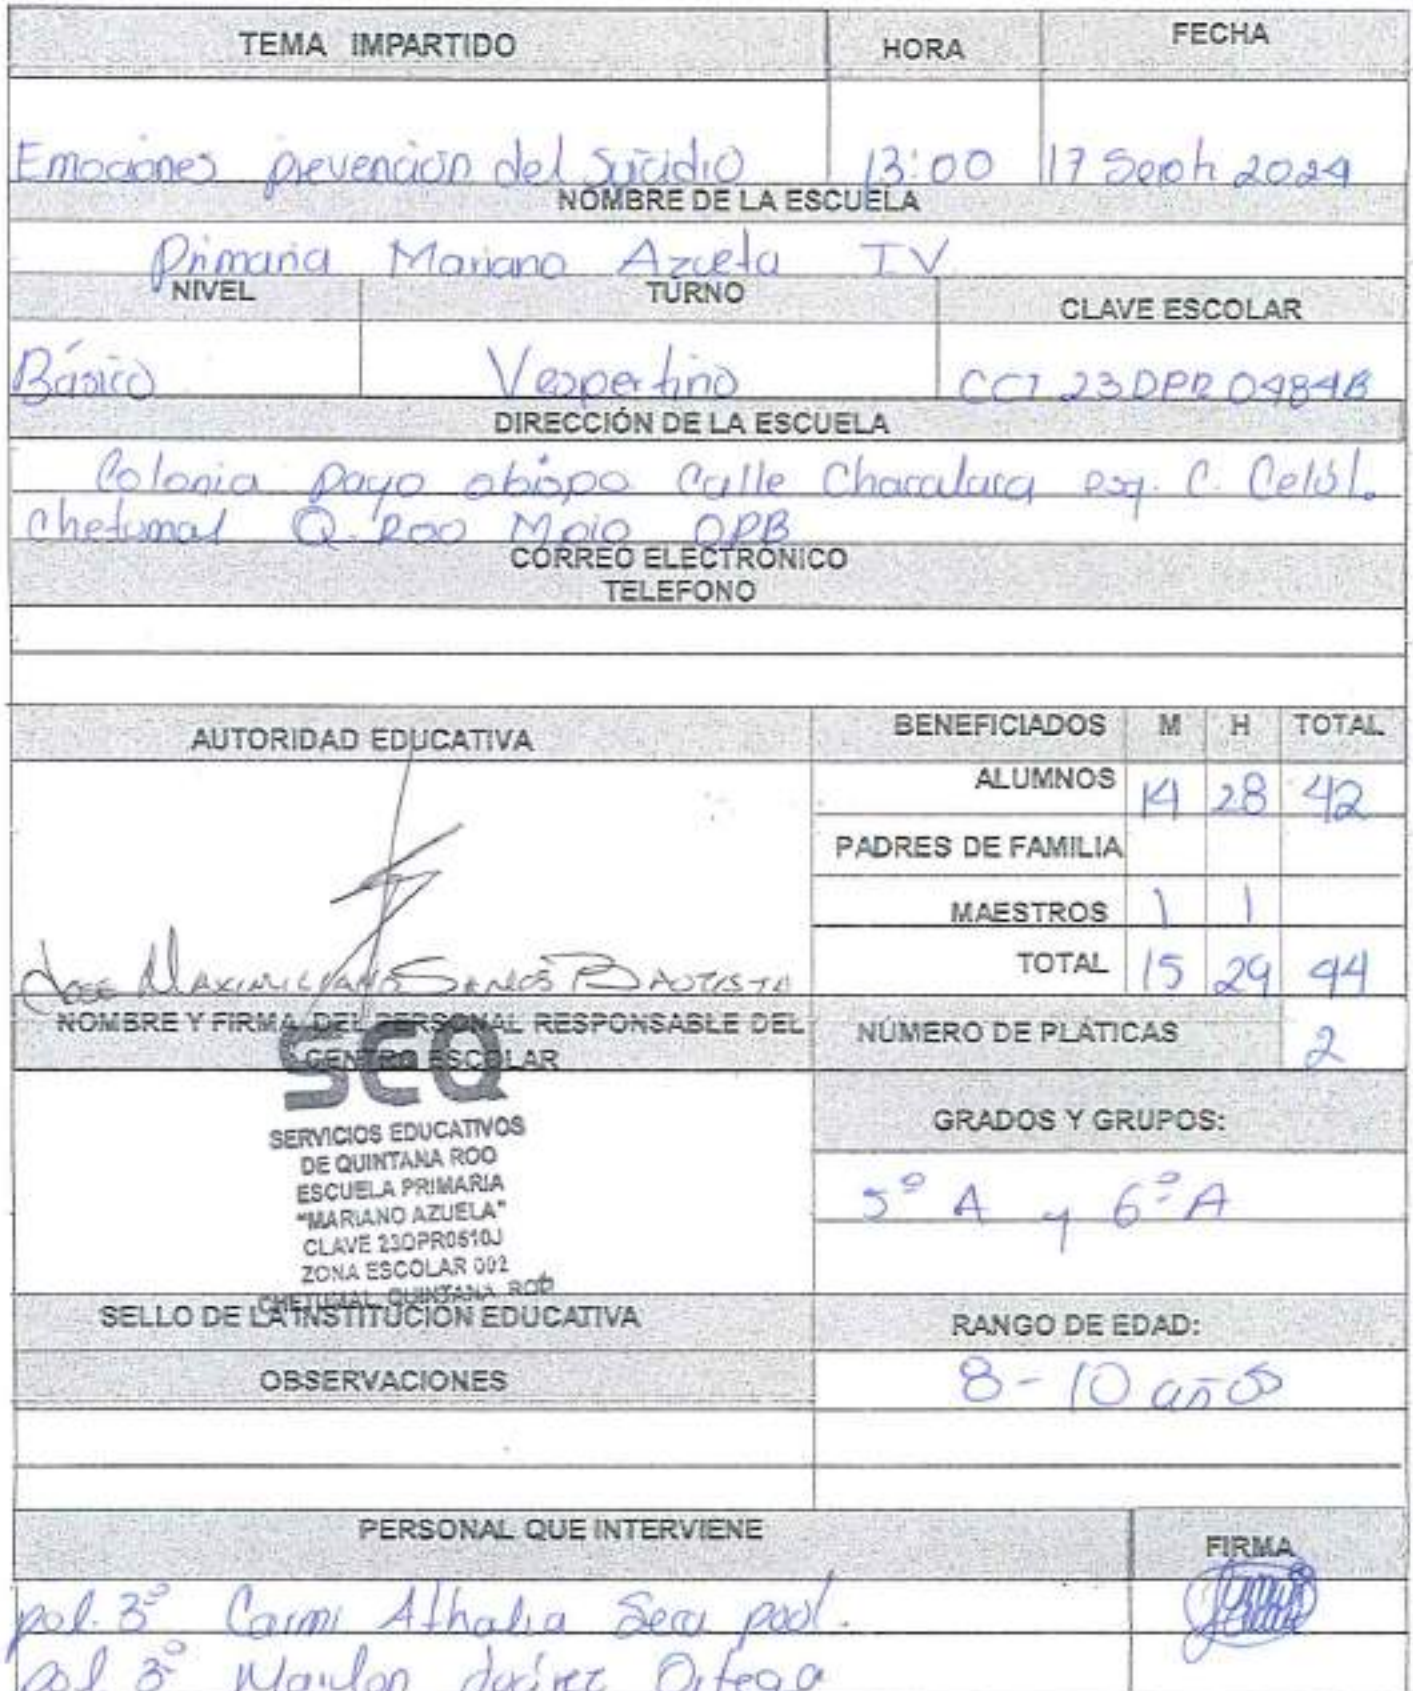 TEMA IMPARTIDO HORA FECHA
Emociones prevención del Suicidio 13:00 17 Sep 2024
NOMBRE DE LA ESCUELA
Primaria Mariano Azuela TV
NIVEL TURNO CLAVE ESCOLAR
Básico Vespertino CCT 23DPR0484B
DIRECCIÓN DE LA ESCUELA
Colonia payo obispo Calle Chacalaca esq. C. Celúl.
Chetumal Q. Roo Mpio OPB
CORREO ELECTRÓNICO
TELEFONO
AUTORIDAD EDUCATIVA BENEFICIADOS M H TOTAL
ALUMNOS 14 28 42
PADRES DE FAMILIA
MAESTROS 1 1
JOSE MAXIMILIANO SANLOS BAUTISTA
TOTAL 15 29 44
NOMBRE Y FIRMA DEL PERSONAL RESPONSABLE DEL
CENTRO ESCOLAR
NÚMERO DE PLÁTICAS 2
SEQ
SERVICIOS EDUCATIVOS
DE QUINTANA ROO
ESCUELA PRIMARIA
"MARIANO AZUELA"
CLAVE 23DPR0510J
ZONA ESCOLAR 002
CHETUMAL, QUINTANA ROO
GRADOS Y GRUPOS:
5º A y 6º A
SELLO DE LA INSTITUCIÓN EDUCATIVA
RANGO DE EDAD:
8-10 años
OBSERVACIONES
PERSONAL QUE INTERVIENE FIRMA
pol. 3º Carmi Athalia Sera pool.
pol 3º Marlon Juárez Ortega